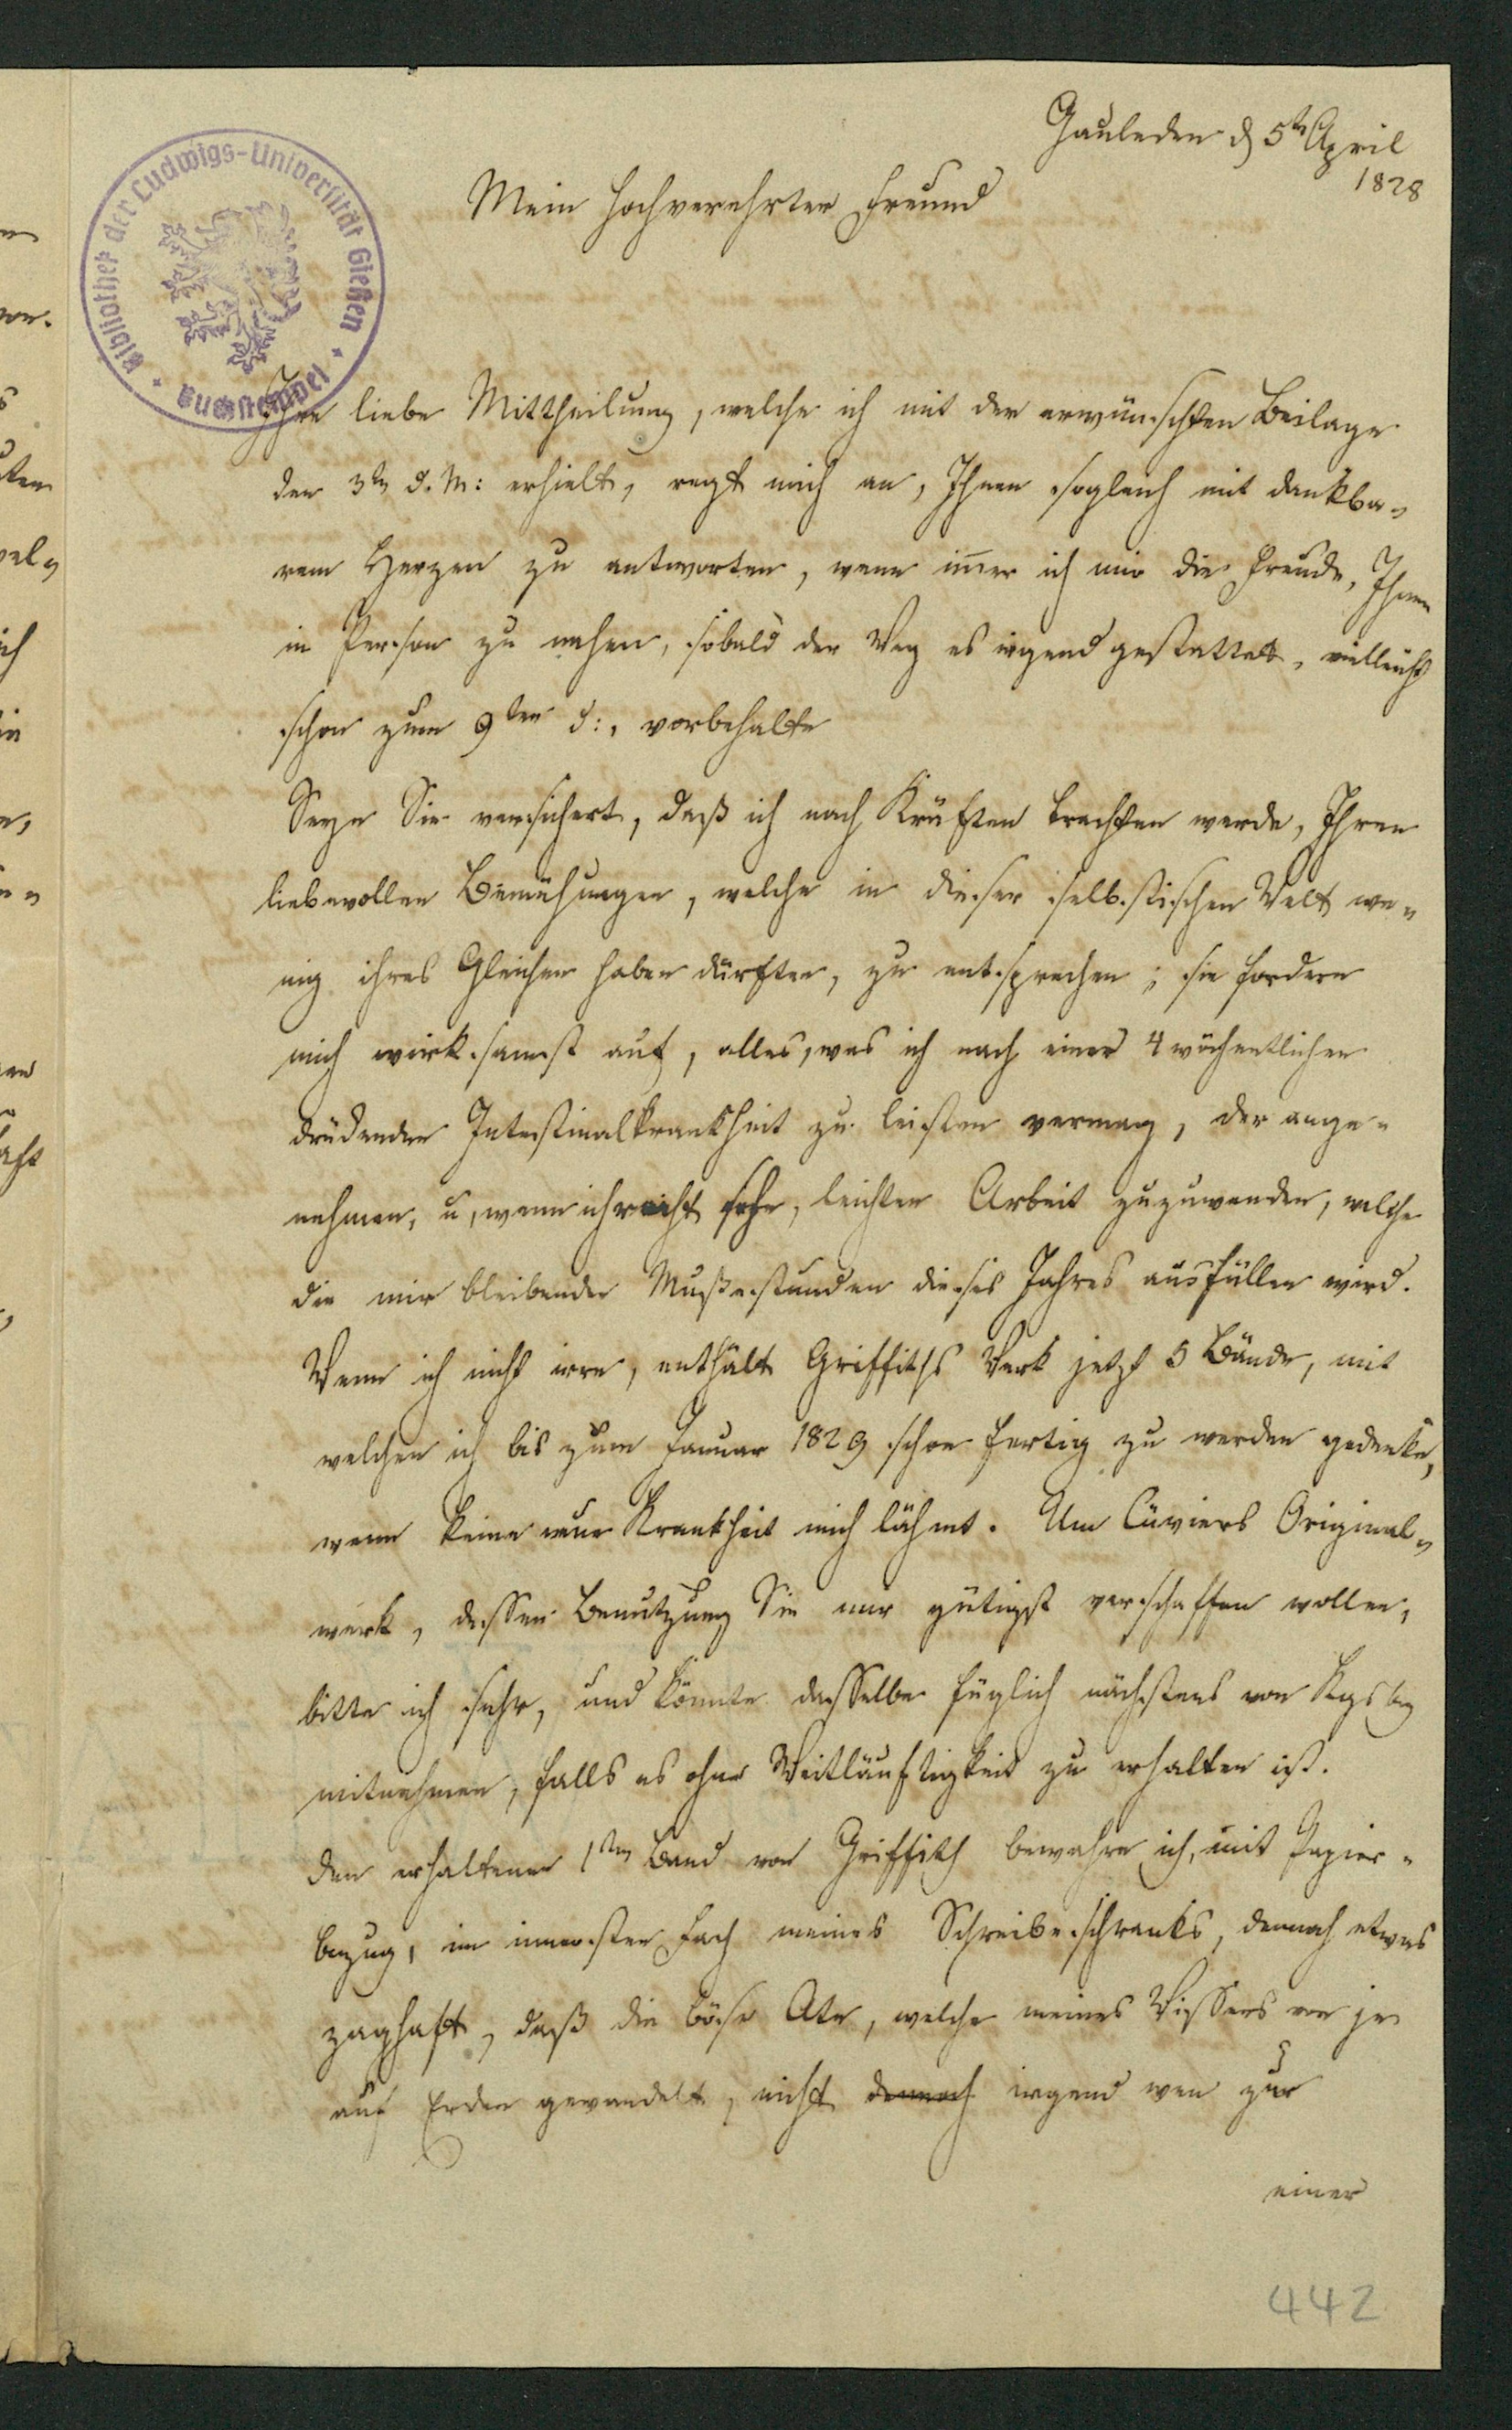 Gauleden d 5t April
1828
Mein hochverehrter Freund
Bibliothek der Ludwigs-Universität Gießen
Buchstempel
Ihre liebe Mittheilung, welche ich mit der erwünschten Beilage
den 3tn d. M: erhielt, regt mich an, Ihnen sogleich mit dankba-
rem Herzen zu antworten, wenn im̄er ich mir die Freude, Ihnen
in Person zu nahen, sobald der Weg es irgend gestattet, vielleicht
schon zum 9ten d:, vorbehalte
Seyn Sie versichert, daß ich nach Kräften trachten werde, Ihren
liebevollen Bemühungen, welche in dieser selbstischen Welt we-
nig ihres Gleichen haben dürften, zu entsprechen; sie fordern
mich wirksamst auf, alles, was ich nach einer 4 wöchentlichen
drückenden Intestinalkrankheit zu leisten vermag, der ange-
nehmen, u, wenn ich recht sehe, leichten Arbeit zuzuwenden, welche
die mir bleibenden Mußestunden dieses Jahres ausfüllen wird.
Wenn ich nicht irre, enthält Griffiths Werk jetzt 5 Bände, mit
welchen ich bis zum Januar 1829 schon fertig zu werden gedenke,
wenn keine neue Krankheit mich lähmt. Um Cüviers Original-
werk, dessen Benutzung Sie mir gütigst verschaffen wollen,
bitte ich sehr, und könnte dasselbe füglich nächstens von Kgsbg
mitnehmen, falls es ohne Weitläuftigkeit zu erhalten ist.
Den erhaltenen 1ten Band von Griffith bewahre ich, mit Papier-
bezug, im innersten Fach meines Schreibeschranks, dennoch etwas
zaghaft, daß die böse Ate, welche meines Wissens von je
auf Erden gewandelt, nicht dennoch irgend wen zur
einer
442